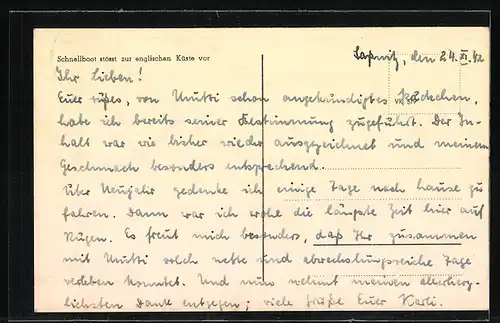 Schnellboot stösst zur englischen Küste vor
Saßnitz, den 24. XI. 42
Ihr Lieben!
Euer süßes, von Mutti schon angekündigtes Päckchen,
habe ich bereits seiner Bestimmung zugeführt. Der In-
halt war wie bisher wieder ausgezeichnet und meinem
Geschmack besonders entsprechend.
Über Neujahr gedenke ich einige Tage nach hause zu
fahren. Dann war ich wohl die längste Zeit hier auf
Rügen. Es freut mich besonders, daß Ihr zusammen
mit Mutti solch nette und abwechslungsreiche Tage
verleben konntet. Und nun nehmt meinen allerherz-
lichsten Dank entgegen; viele Grüße Euer Karli.